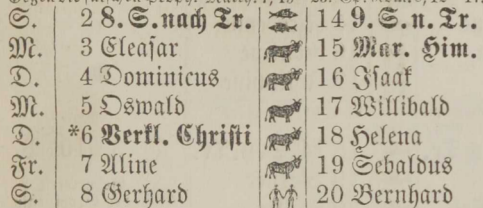 S. 2 8. S. nach Tr. 14 9. S. n. Tr.
M. 3 Eleasar 15 Mar. Him.
D. 4 Dominicus 16 Isaak
M. 5 Oswald 17 Willibald
D. *6 Verkl. Christi 18 Helena
Fr. 7 Aline 19 Sebaldus
S. 8 Gerhard 20 Bernhard